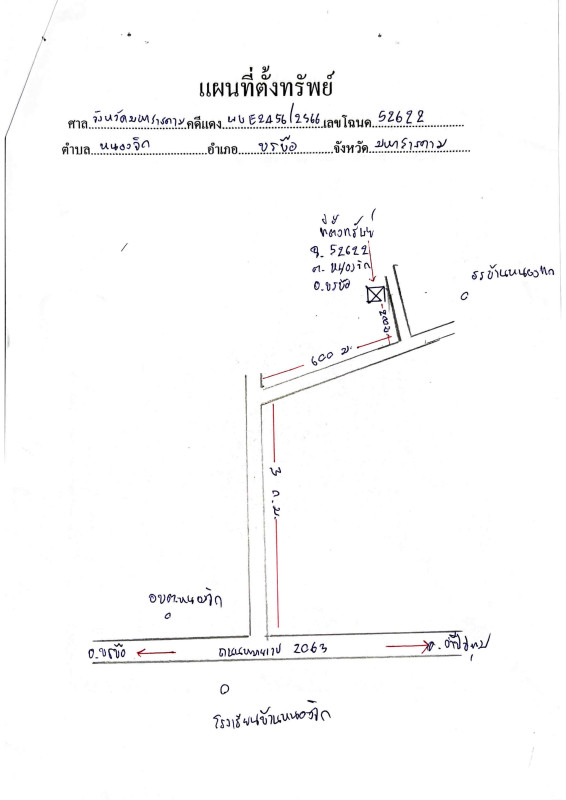 แผนที่ตั้งทรัพย์
ศาล จังหวัดมหาสารคาม คดีแดง ผบE2456/2566 เลขโฉนด 52622
ตำบล หนองจิก อำเภอ บรบือ จังหวัด มหาสารคาม
ที่ตั้งทรัพย์
ฉ. 52622
ต. หนองจิก
อ. บรบือ
รร บ้านหนองแก
200 ม.
600 ม.
3 ก.ม.
อบต.หนองจิก
อ.บรบือ
ถนนหมายเลข 2063
โรงเรียนบ้านหนองจิก